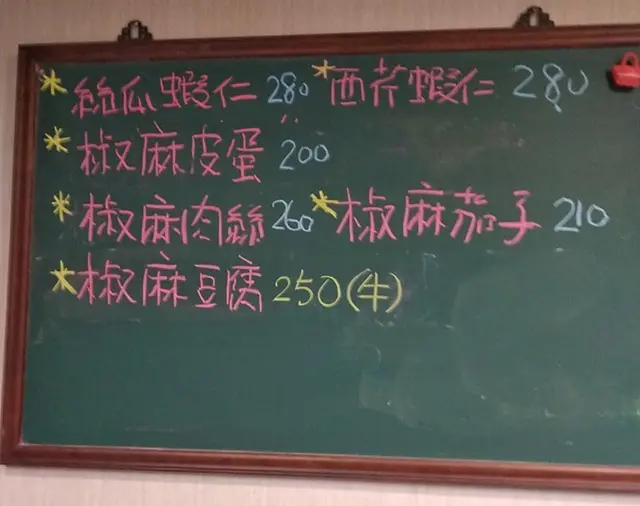 *絲瓜蝦仁 280 *西芹蝦仁 280
*椒麻皮蛋 200
*椒麻肉絲 260 *椒麻茄子 210
*椒麻豆腐 250(牛)